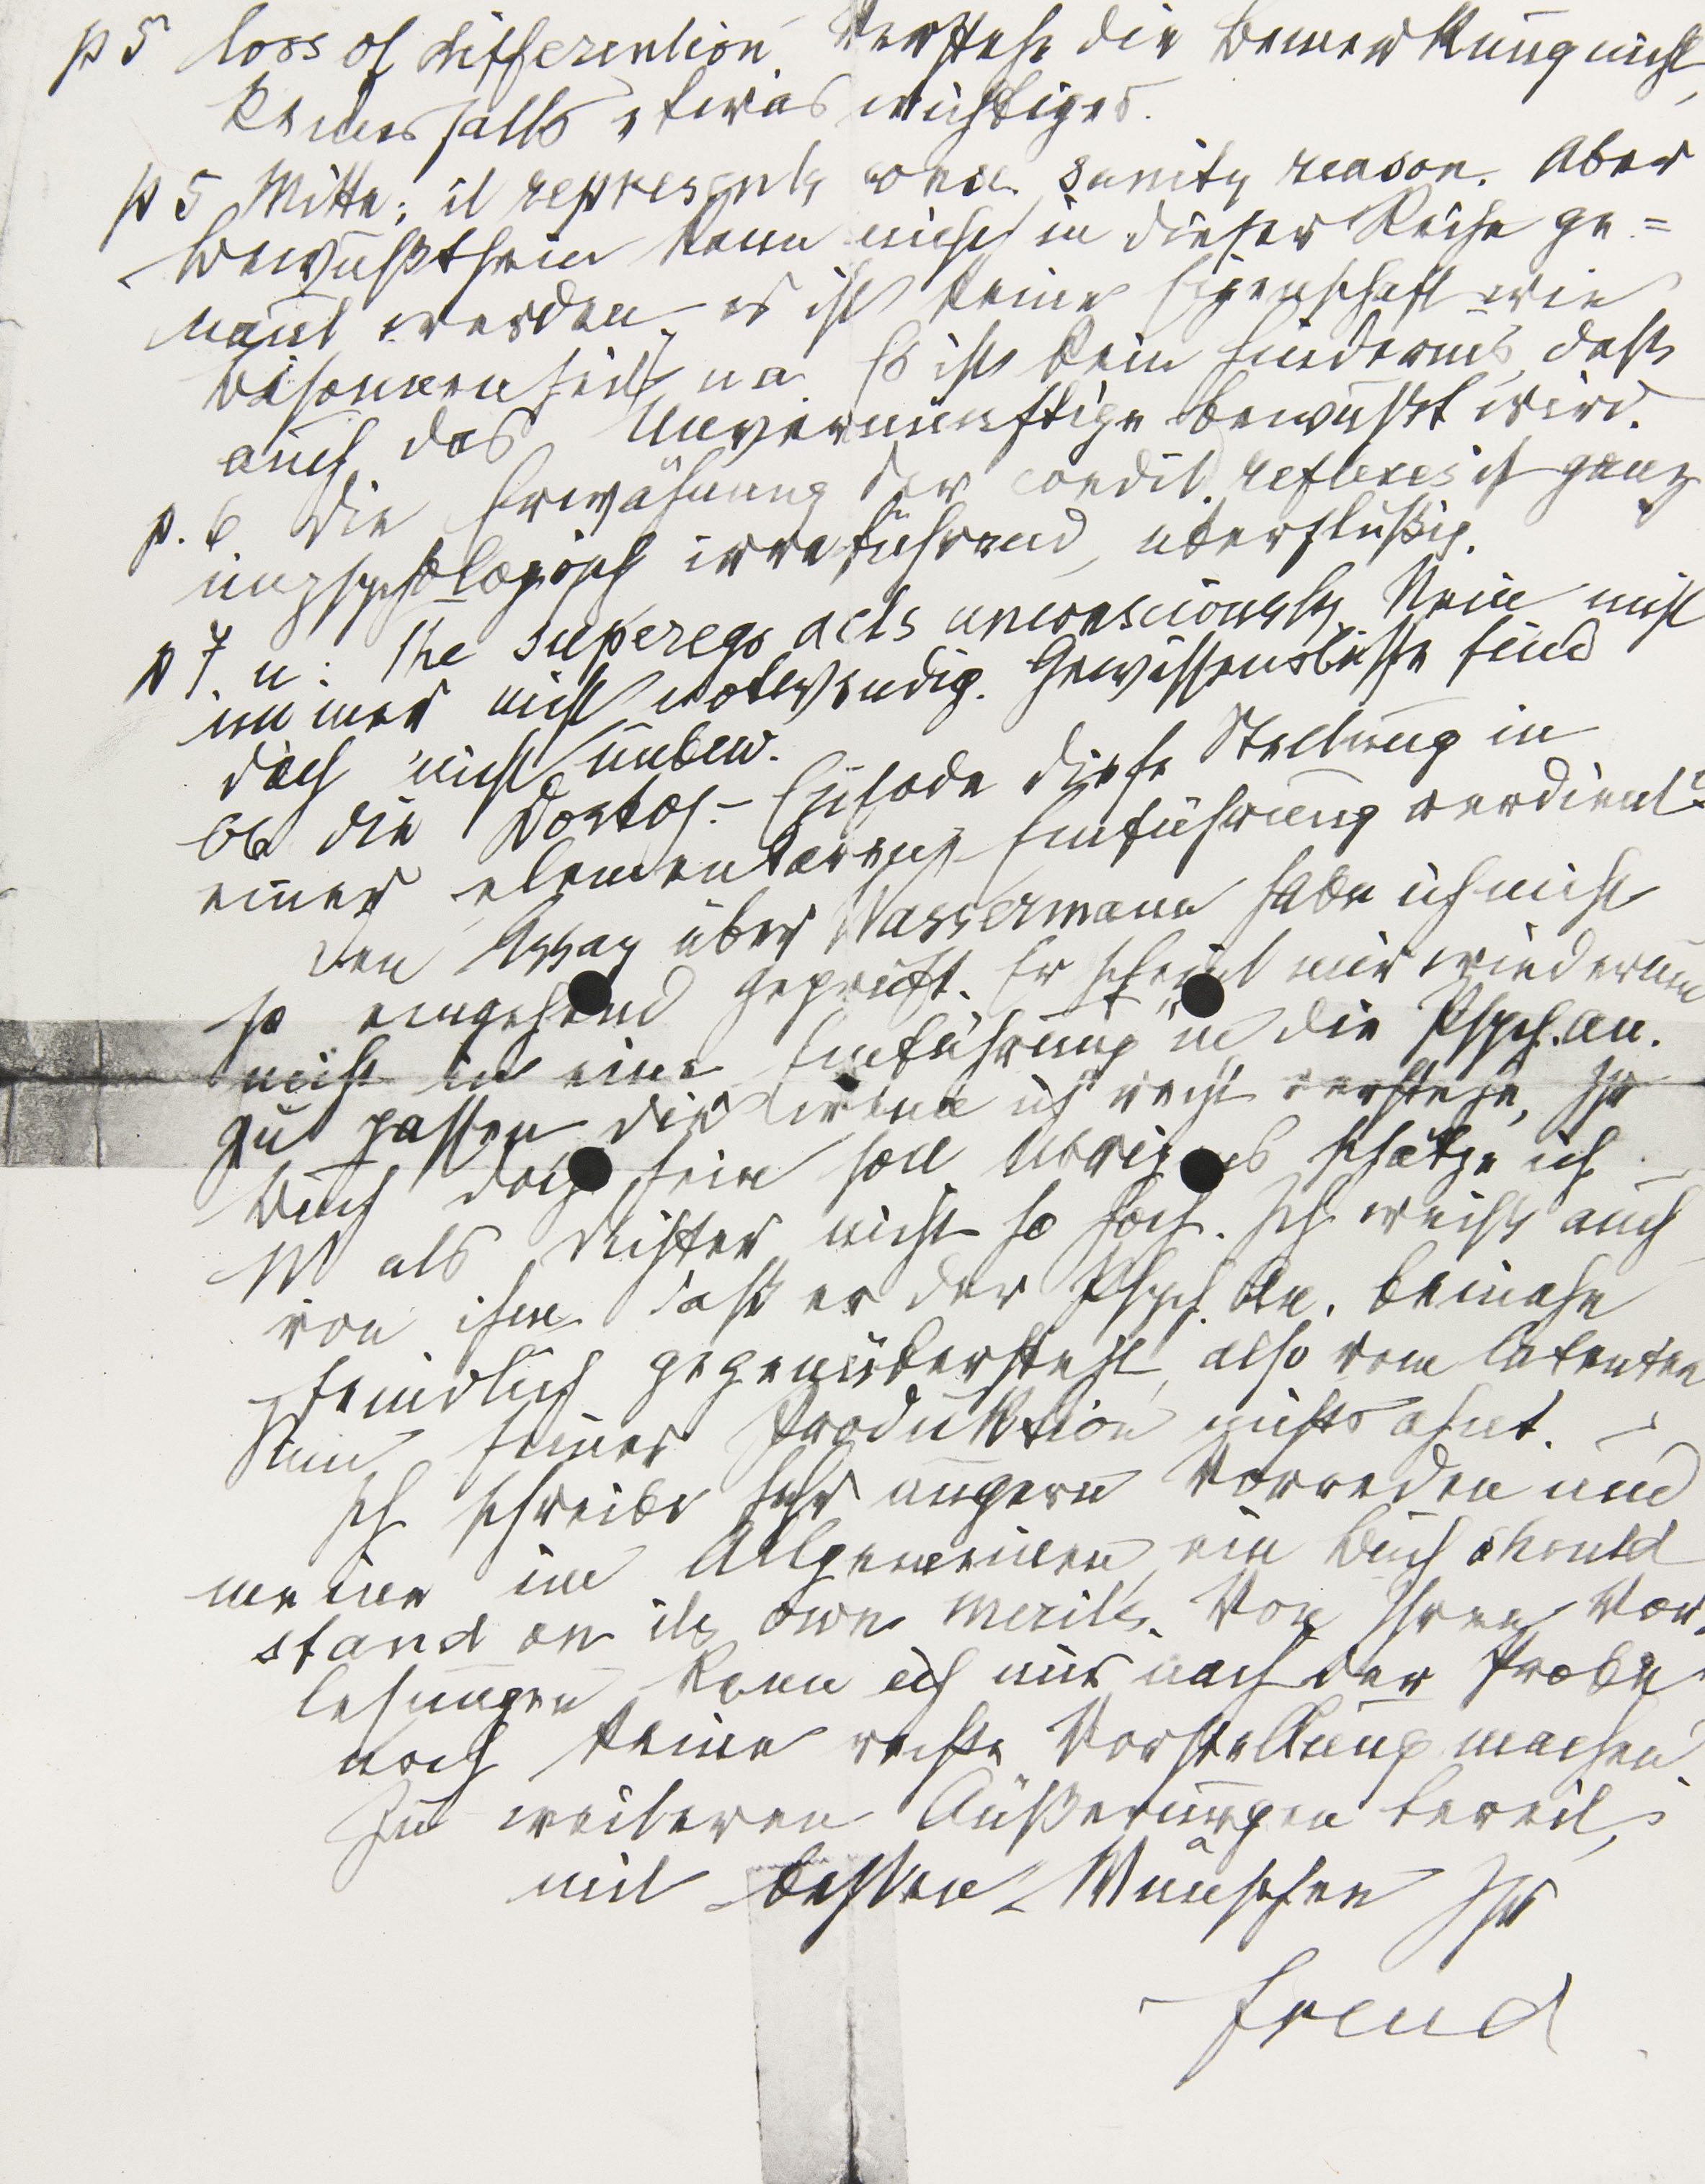 p 5 loss of differention. Verstehe die Bemerkung nicht,
Keinesfalls etwas wichtiges.
p 5 Mitte: it represents sanity reason. Aber
Bewußtsein kann nicht in dieser Reihe ge=
nannt werden, es ist keine Eigenschaft wie
Besonnenheit ua. Es ist kein Hindernis, daß
auch das Unvernünftige bewußt wird.
p. 6 Die Erwähnung der condit. reflexes ist ganz
unpsychologisch irreführend, überflüßig.
p 7 u: The superego acts unconsciously. Nein nicht
immer nicht notwendig. Gewissensbisse sind
doch nicht unbew.
Ob die Dostoj.- Episode diese Stellung in
einer elementaren Einführung verdient?
Den Essay über Wassermann habe ich nicht
so eingehend geprüft. Er scheint mir wiederum
nicht in eine Einführung in die Psych.an.
gut passen die wenn ich recht verstehe, Ihr
Buch doch sein soll Übrigens schätze ich
W als Dichter nicht so hoch. Ich weiß auch
von ihm daß er der Psych. An. beinahe
feindlich gegenübersteht, also vom latenten
Sinn seiner Produktion nichts ahnt.
Ich schreibe sehr ungern Vorreden und
meine im Allgemeinen, ein Buch should
stand on its own merits. Von Ihren Vor-
lesungen kann ich mir nach der Probe
noch keine rechte Vorstellung machen.
Zu weiteren Äußerungen bereit,
mit besten Wünschen Ihr
Freud